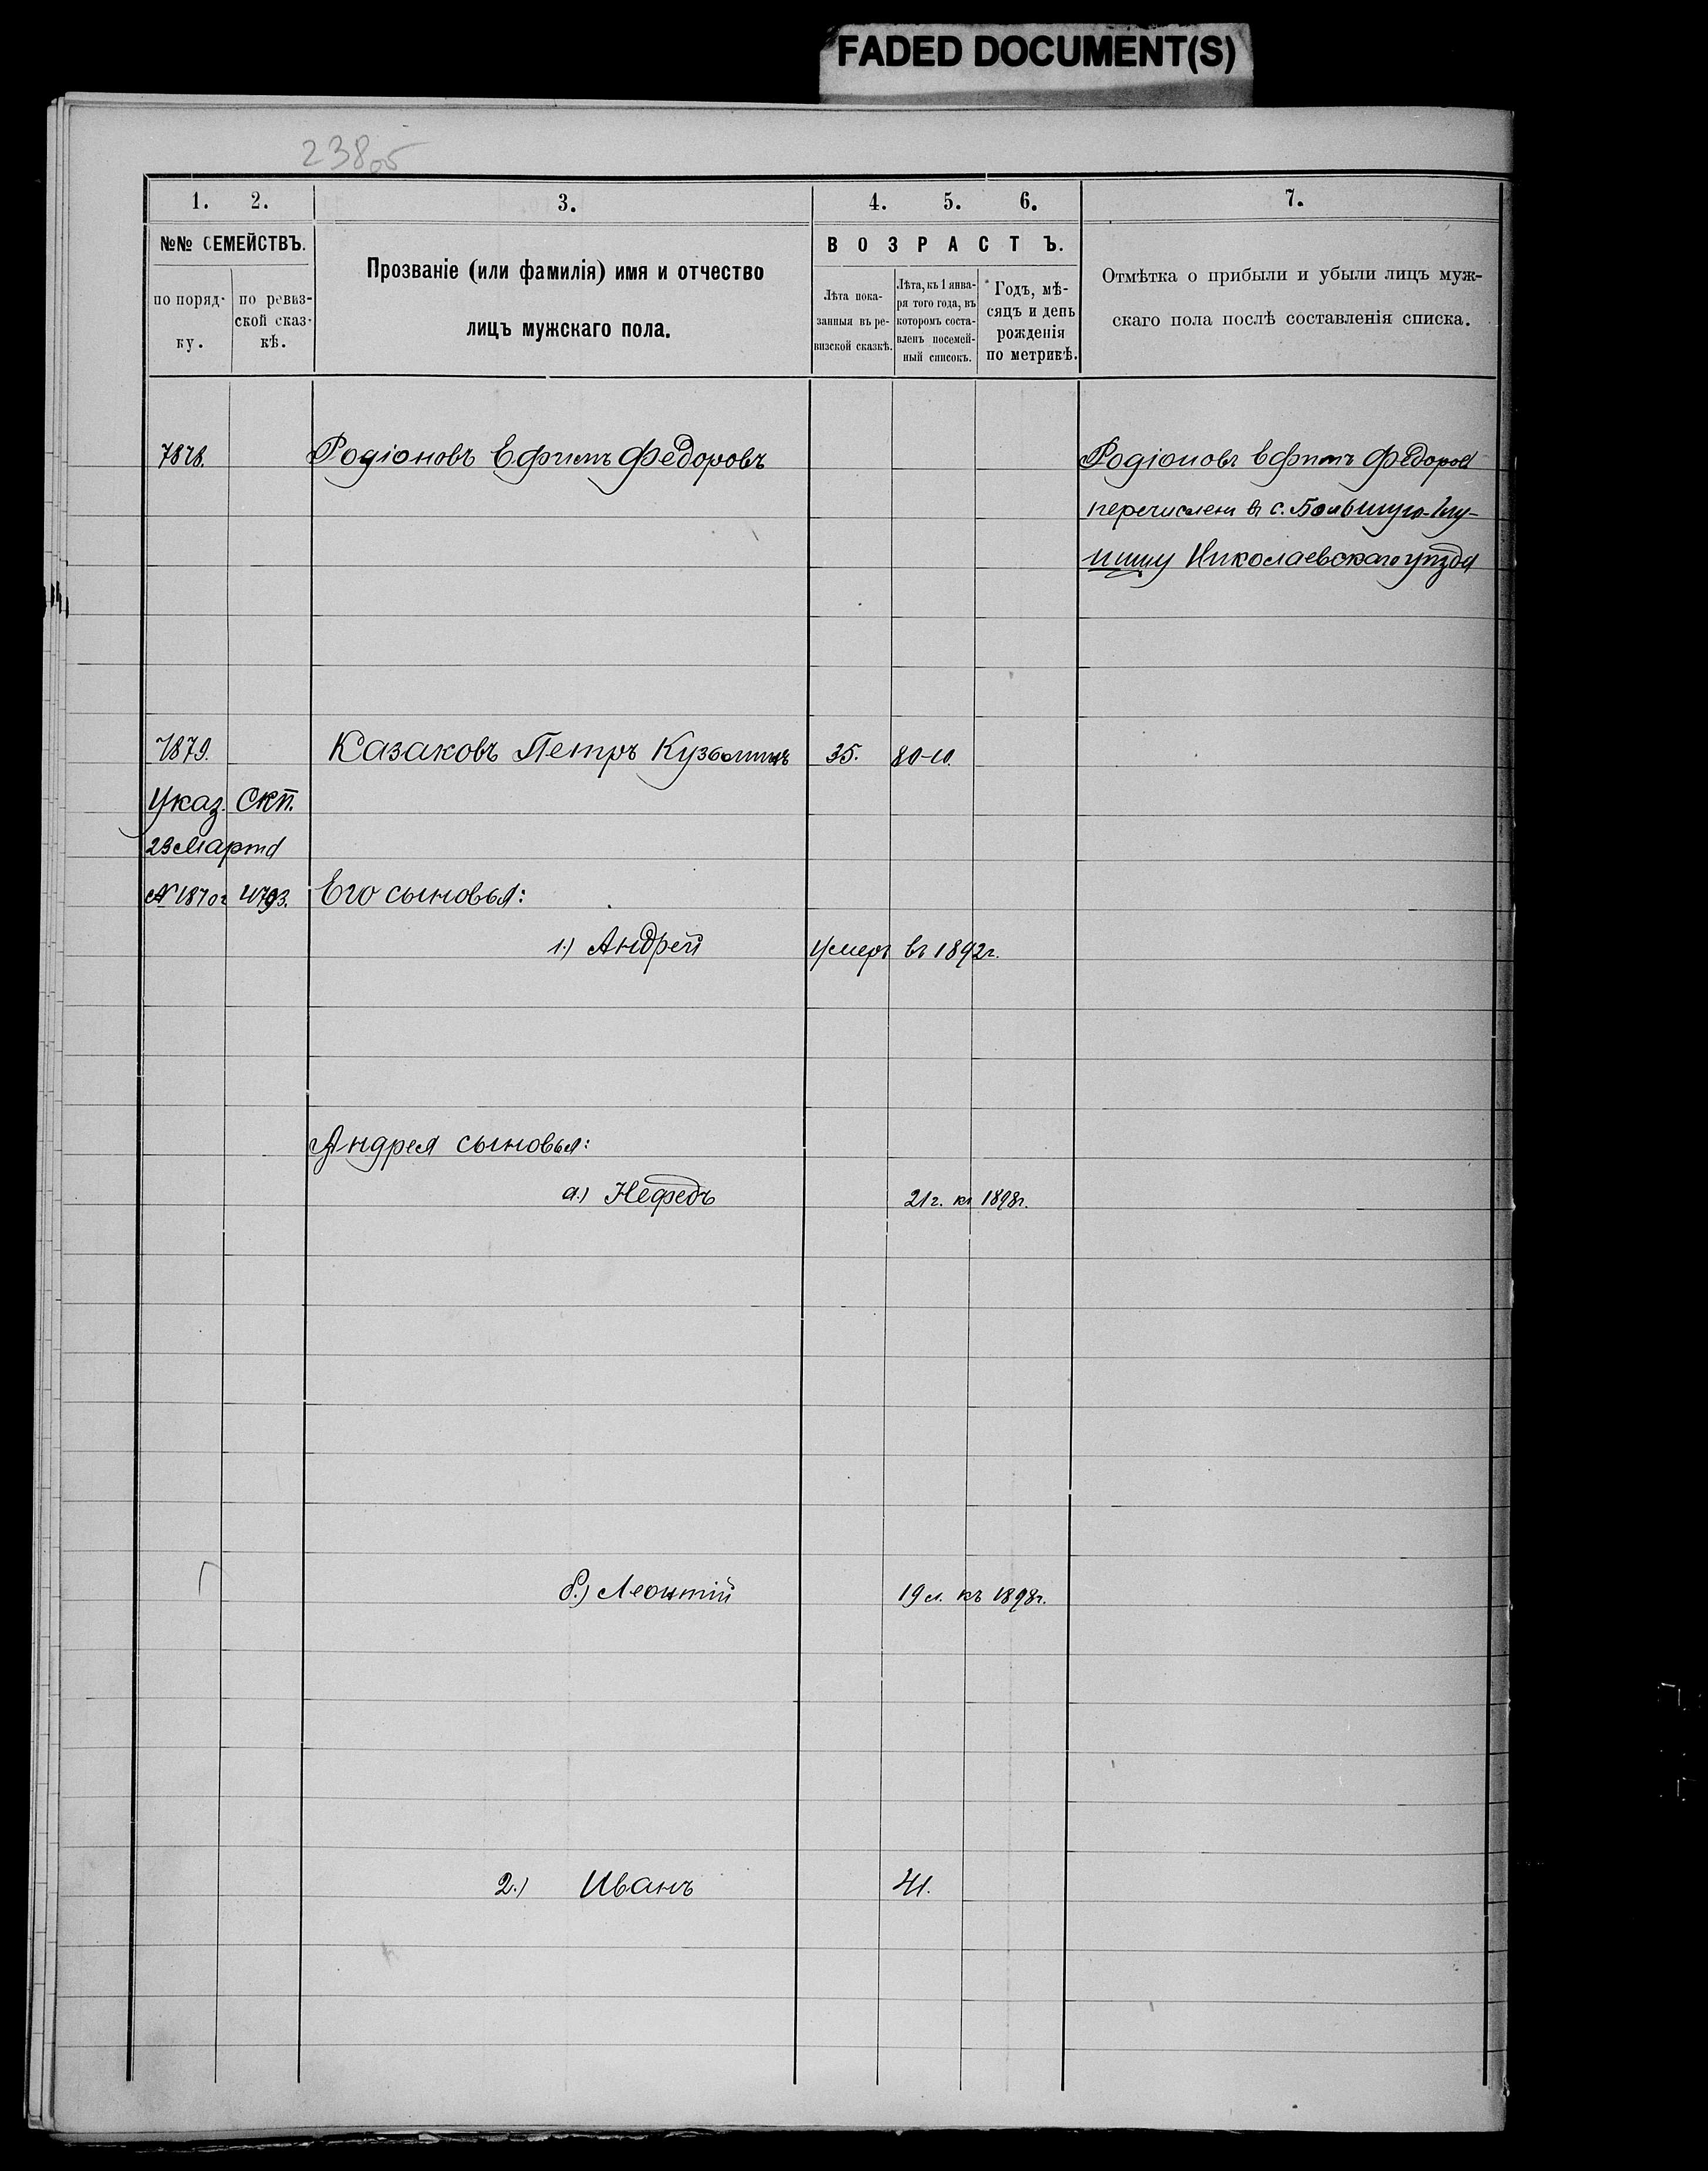 FADED DOCUMENT(S)
238об
1. 2. 3. 4. 5. 6. 7.
№№ СЕМЕЙСТВЪ.
по поряд-
ку.
по ревиз-
ской сказ-
кѣ.
Прозваніе (или фамилія) имя и отчество
лицъ мужскаго пола.
ВОЗРАСТЪ.
Лѣта пока-
занныя въ ре-
визской сказкѣ.
Лѣта, къ 1 янва-
ря того года, въ
которомъ соста-
вленъ посемей-
ный списокъ.
* Годъ, мѣ-
сяцъ и день
рожденія
по метрикѣ.
Отмѣтка о прибыли и убыли лицъ муж-
скаго пола послѣ составленія списка.
7878. Родіоновъ Ефимъ Федоровъ
Родіоновъ Ефимъ Федоров
перечислен в с. Большую-Глу-
шицу Николаевскаго уѣзда
7879. Казаковъ Петръ Кузьминъ 35. 80-10.
Указ. СКП.
23 Марта
1870г 4793. Его сыновья:
1.) Андрей умеръ въ 1892г.
Андрея сыновья:
а.) Нефедъ 21г. къ 1898г.
б.) Леонтій 19 л. къ 1898г.
2.) Иванъ 41.